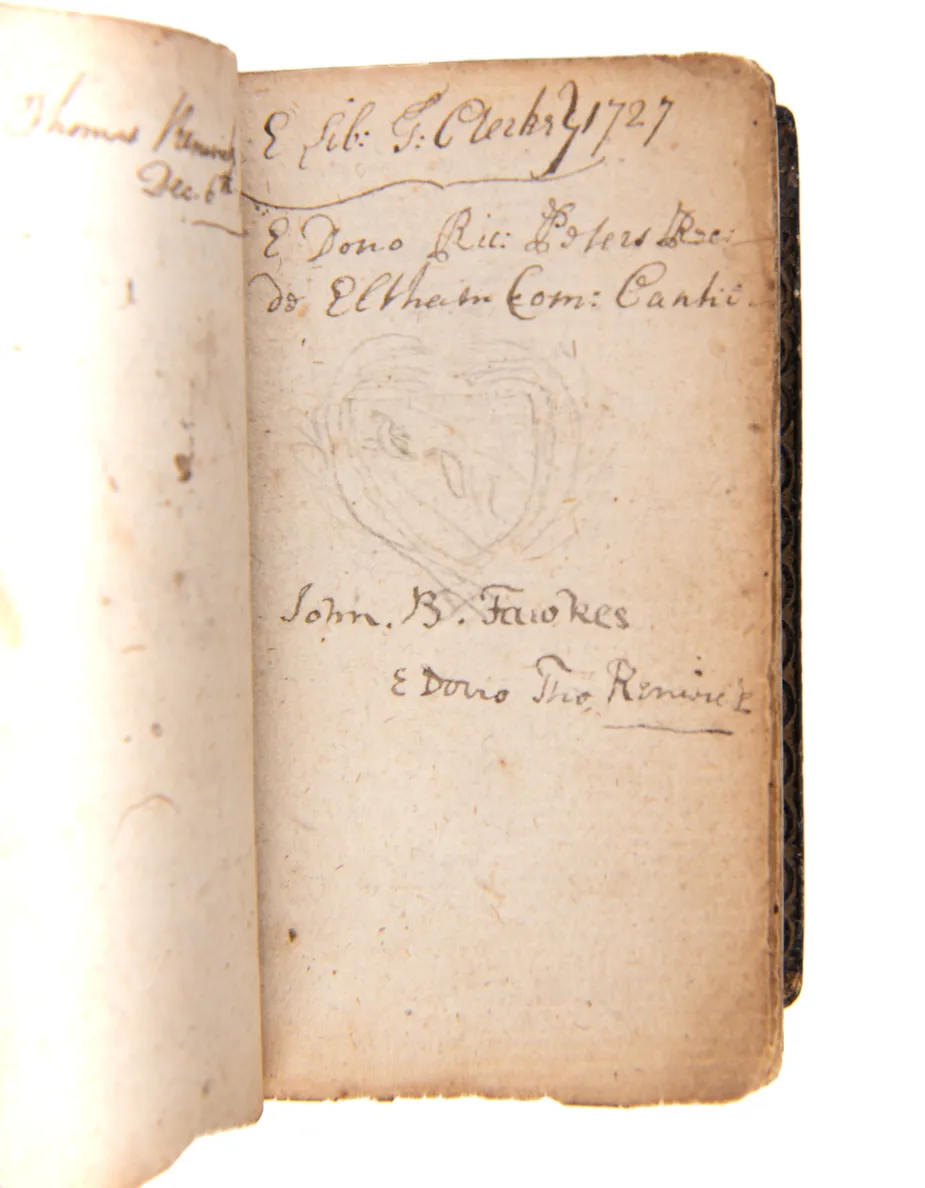 Thomas Renwick
Dec. 6th
E Lib: G: Clerke 1727
E Dono Ric: Peters Rec:
de Eltham Com: Cantii
John. B. Fawkes
E Dono Tho. Renwick